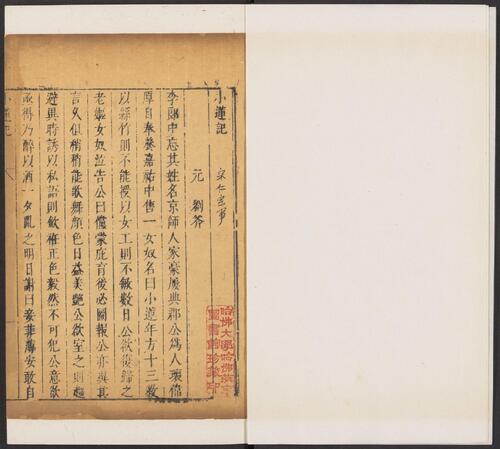 小蓮記
宋仁宗事
元 劉斧
李郎中忘其姓名京師人家豪屢典郡公爲人瓌偉
厚自奉養嘉祐中售一女奴名曰小蓮年方十三教
以絲竹則不能授以女工則不敏數日公欲復歸之
老嫗女奴泣告公曰儻蒙庇育後必圖報公亦異其
言久但稍稍能歌舞顏色日益美艶公欲室之則趨
避異時誘以私語則斂袵正色毅然不可犯公意欲
亟得乃醉以酒一夕亂之明日謝曰妾菲薄安敢自
小蓮記
哈佛大學哈佛燕京
圖書館珍藏印